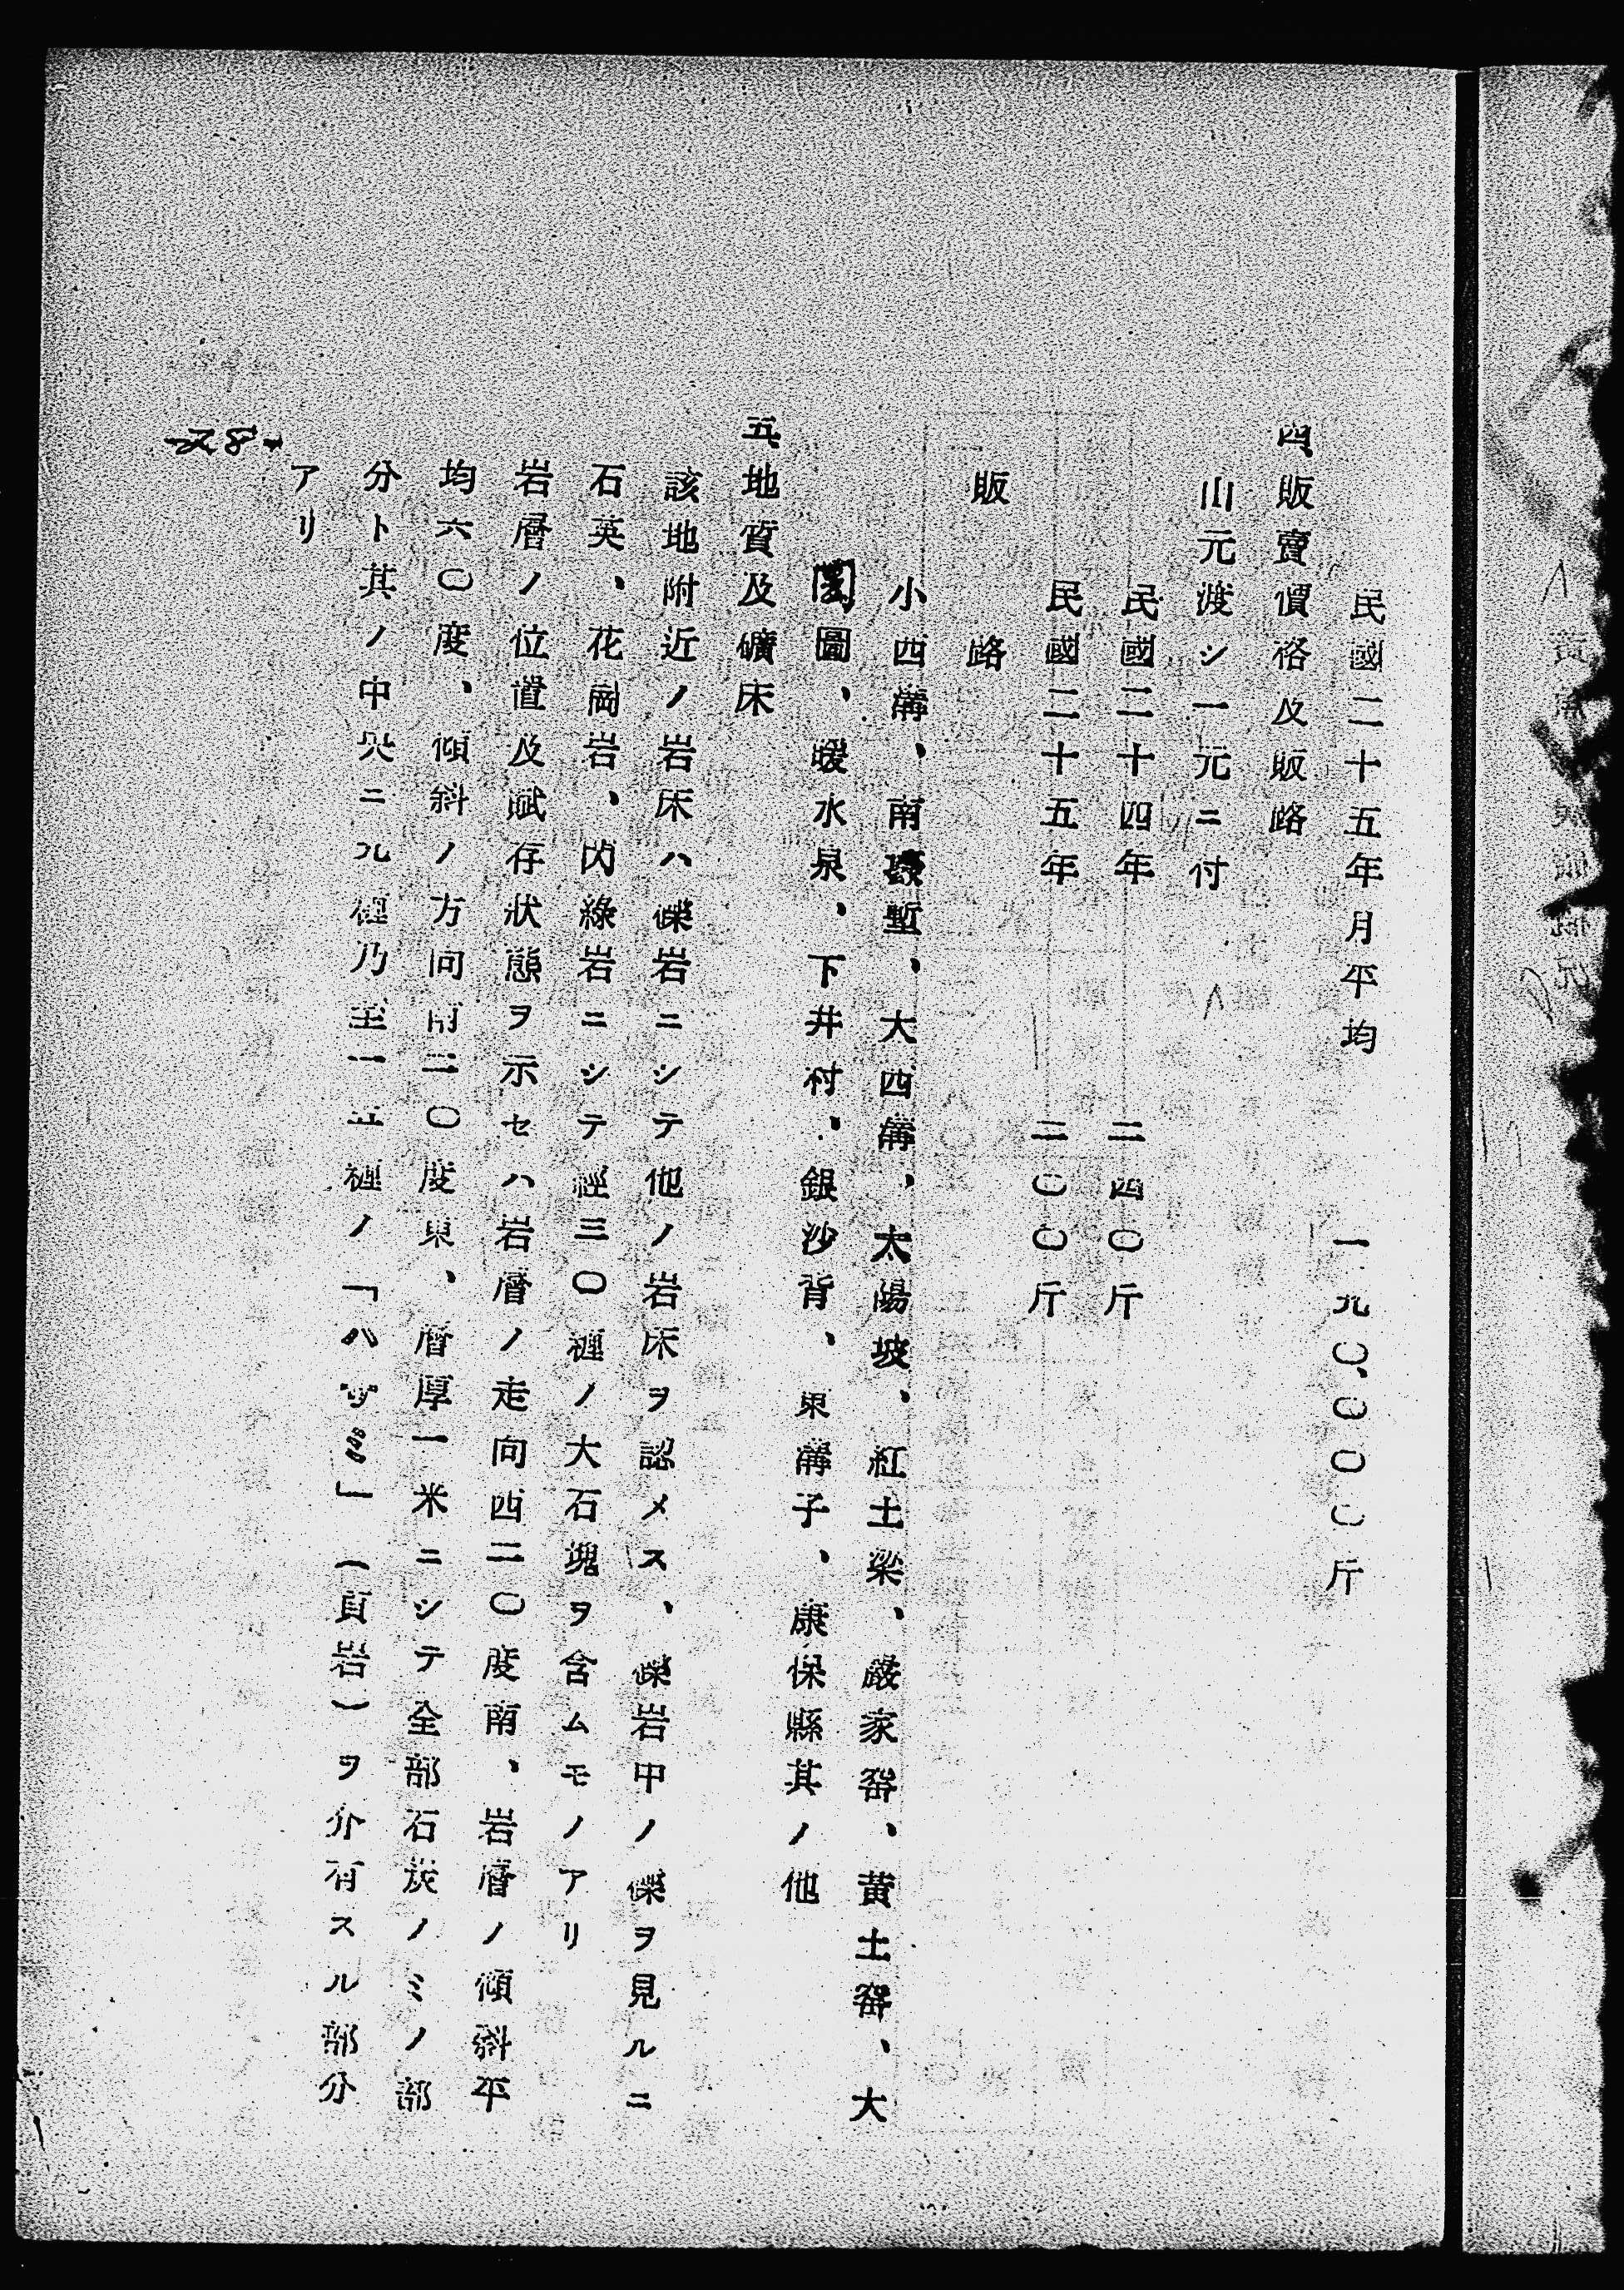 民國二十五年月平均 一九〇、〇〇〇斤
四、販賣價格及販路
山元渡シ一元ニ付
民國二十四年 二四〇斤
民國二十五年 二〇〇斤
販路
小西溝、南壕塹、大西溝、太陽坡、紅土梁、嚴家窰、黄土窰、大
圐圙、暖水泉、下井村、銀沙背、東溝子、康保縣其ノ他
五、地質及礦床
該地附近ノ岩床ハ礫岩ニシテ他ノ岩床ヲ認メス、礫岩中ノ礫ヲ見ルニ
石英、花崗岩、閃綠岩ニシテ徑三〇糎ノ大石塊ヲ含ムモノアリ
岩層ノ位置及賦存狀態ヲ示セハ岩層ノ走向西二〇度南、岩層ノ傾斜平
均六〇度、傾斜ノ方向南二〇度東、層厚一米ニシテ全部石炭ノミノ部
分ト其ノ中央ニ九糎乃至一五糎ノ「ハサミ」（頁岩）ヲ介有スル部分
アリ
-28-